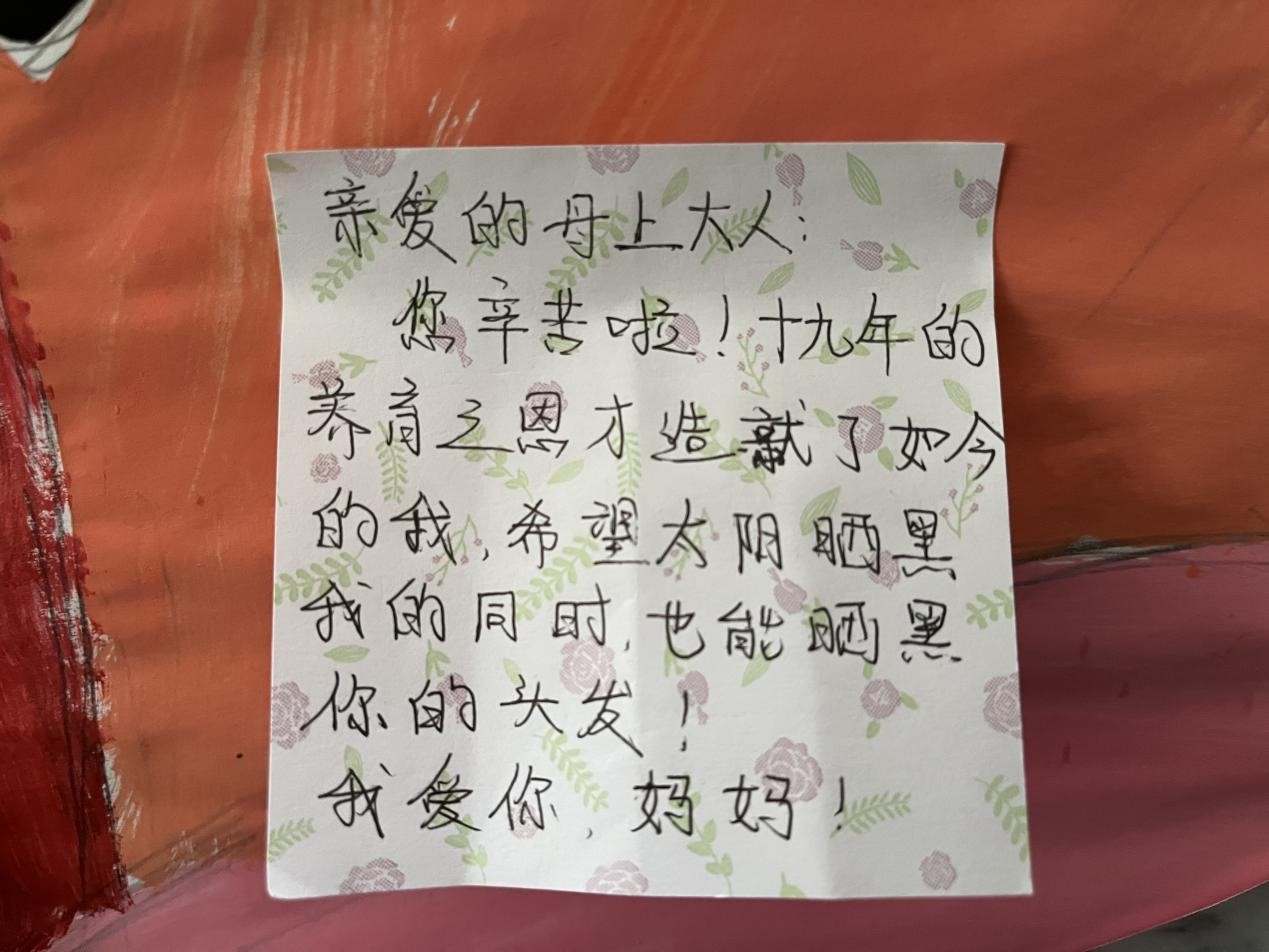 亲爱的母上大人:
您辛苦啦!十九年的
养育之恩才造就了如今
的我,希望太阳晒黑
我的同时,也能晒黑
你的头发!
我爱你,妈妈!